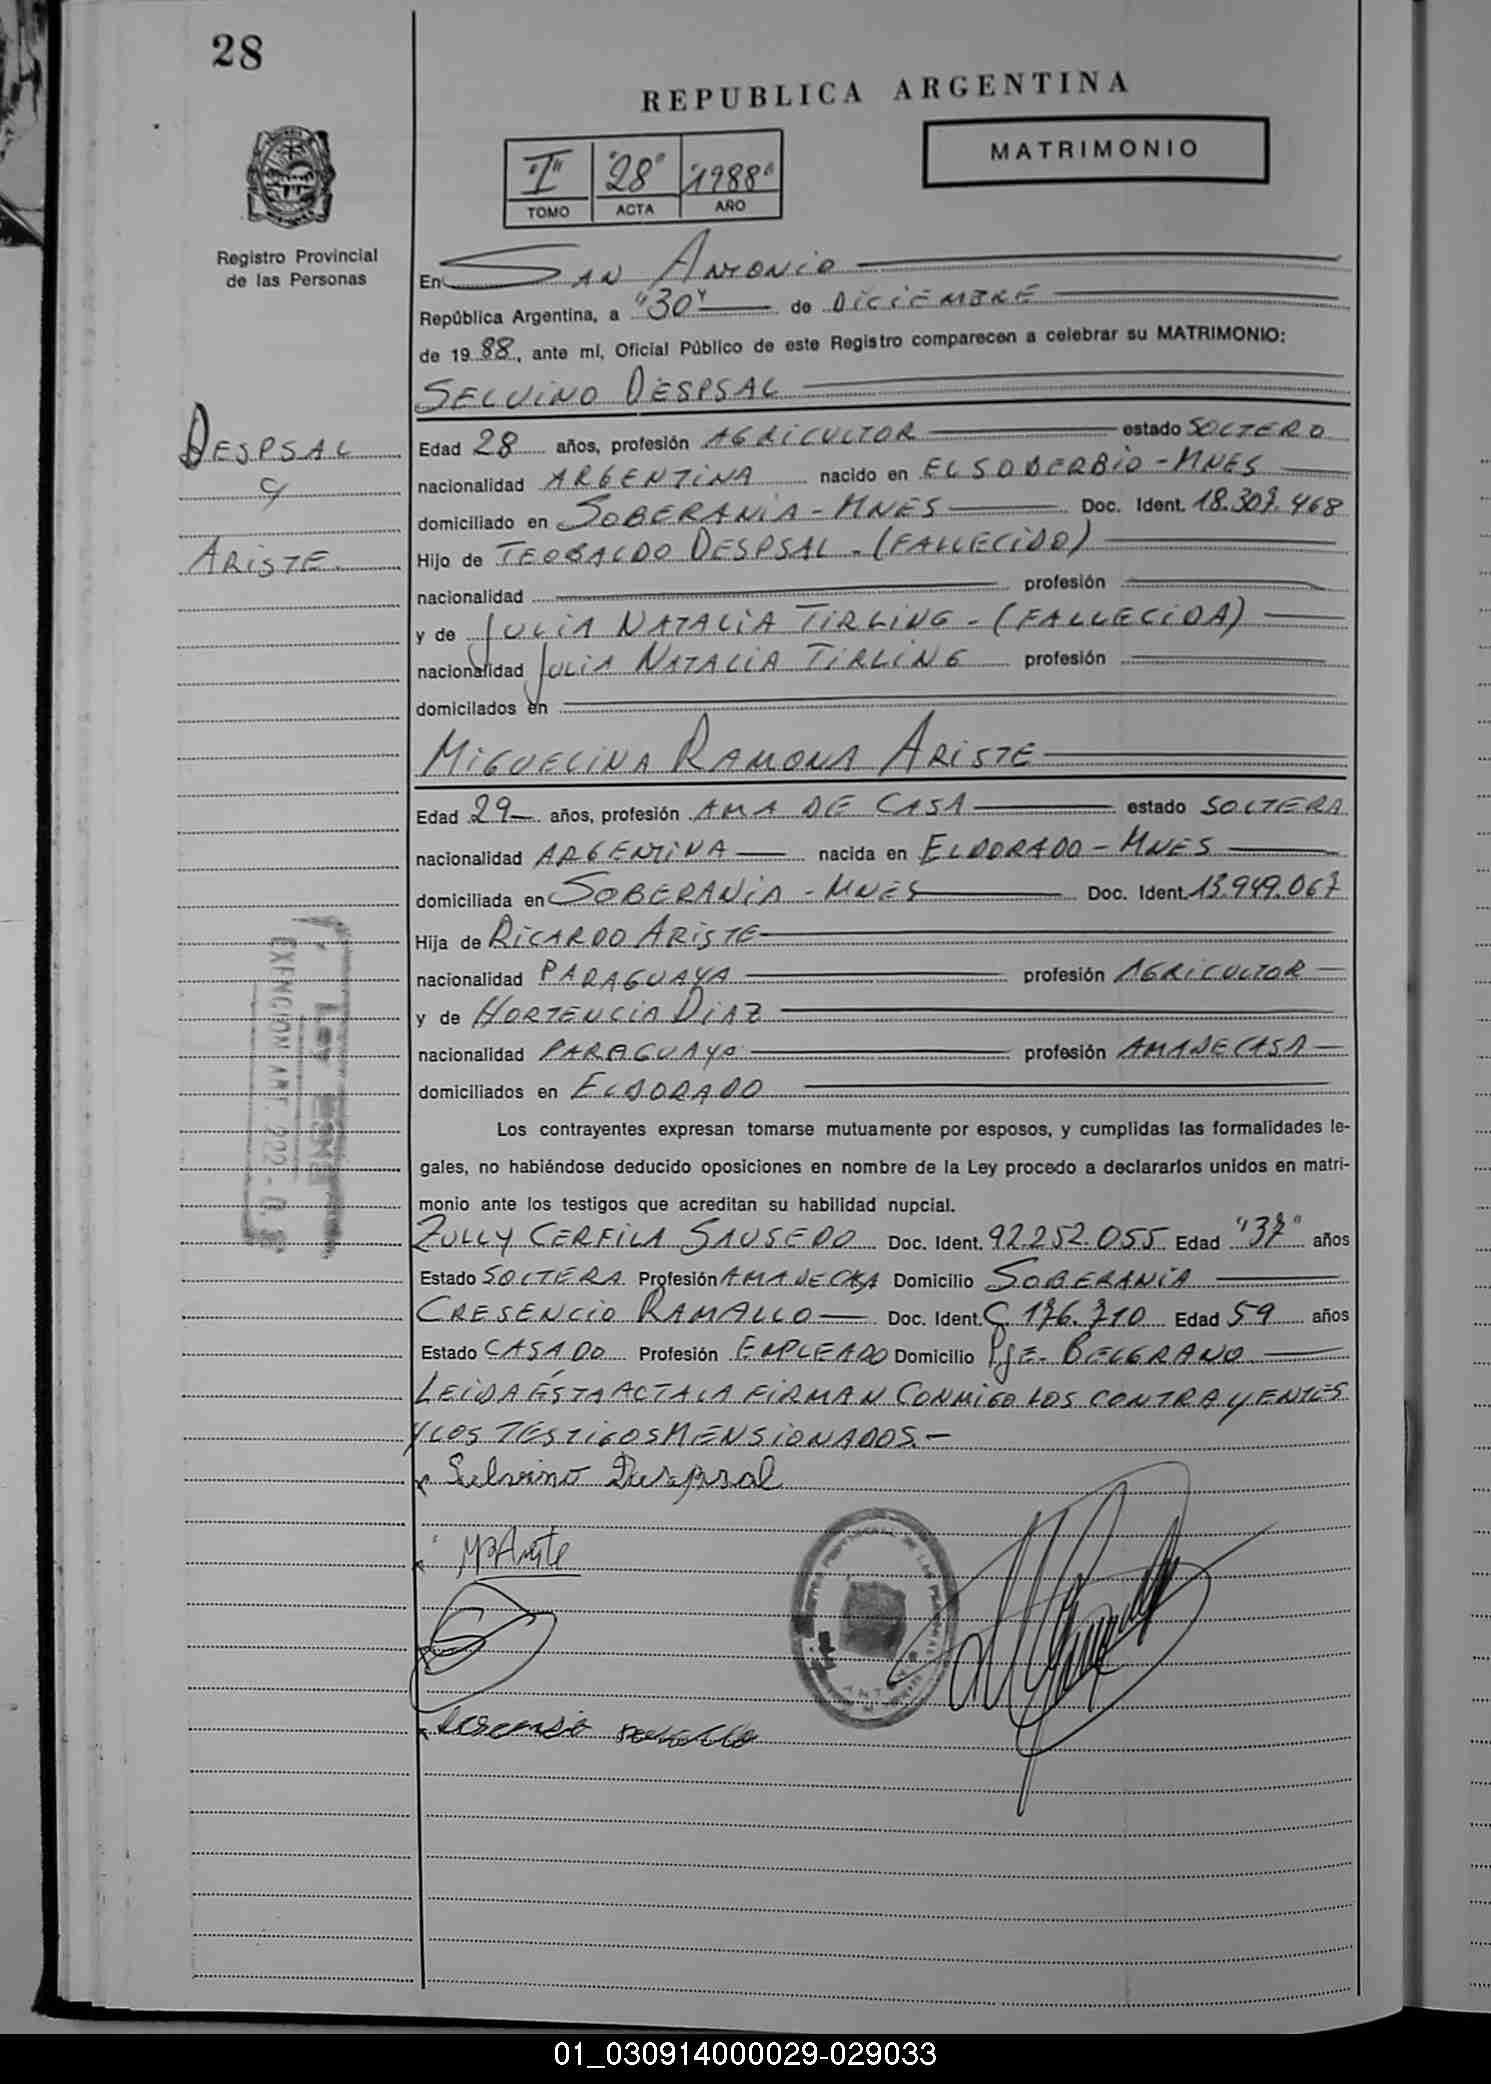 28
REPUBLICA ARGENTINA
MATRIMONIO
"I" "28" "1988"
TOMO ACTA AÑO
Registro Provincial
de las Personas
En SAN ANTONIO
República Argentina, a "30" de DICIEMBRE
de 1988, ante mí, Oficial Público de este Registro comparecen a celebrar su MATRIMONIO:
SELVINO DESPSAL
DESPSAL
y
ARISTE
Edad 28 años, profesión AGRICULTOR estado SOLTERO
nacionalidad ARGENTINA nacido en EL SOBERBIO - MNES
domiciliado en SOBERANIA - MNES Doc. Ident. 18.307.468
Hijo de TEOBALDO DESPSAL - (FALLECIDO)
nacionalidad profesión
y de JULIA NATALIA TIRLING - (FALLECIDA)
nacionalidad JULIA NATALIA TIRLING profesión
domicilados en
MIGUELINA RAMONA ARISTE
Edad 29 años, profesión AMA DE CASA estado SOLTERA
nacionalidad ARGENTINA nacida en ELDORADO - MNES
domiciliada en SOBERANIA - MNES Doc. Ident. 13.949.067
Hija de RICARDO ARISTE
nacionalidad PARAGUAYA profesión AGRICULTOR
y de HORTENCIA DIAZ
nacionalidad PARAGUAYA profesión AMA DE CASA
domiciliados en ELDORADO
Los contrayentes expresan tomarse mutuamente por esposos, y cumplidas las formalidades le-
gales, no habiéndose deducido oposiciones en nombre de la Ley procedo a declararlos unidos en matri-
monio ante los testigos que acreditan su habilidad nupcial.
ZULLY CERFILA SAUSEDO Doc. Ident. 92.252.055 Edad "37" años
Estado SOLTERA Profesión AMA DE CASA Domicilio SOBERANIA
CRESENCIO RAMALLO Doc. Ident. C. 176.710 Edad 59 años
Estado CASADO Profesión EMPLEADO Domicilio Pje. BELGRANO
LEIDA ÉSTA ACTA LA FIRMAN CONMIGO LOS CONTRAYENTES
Y LOS TESTIGOS MENSIONADOS.-
Selvino Despsal
MRAriste
EXENCION ART. 222 - C. F.
01_030914000029-029033